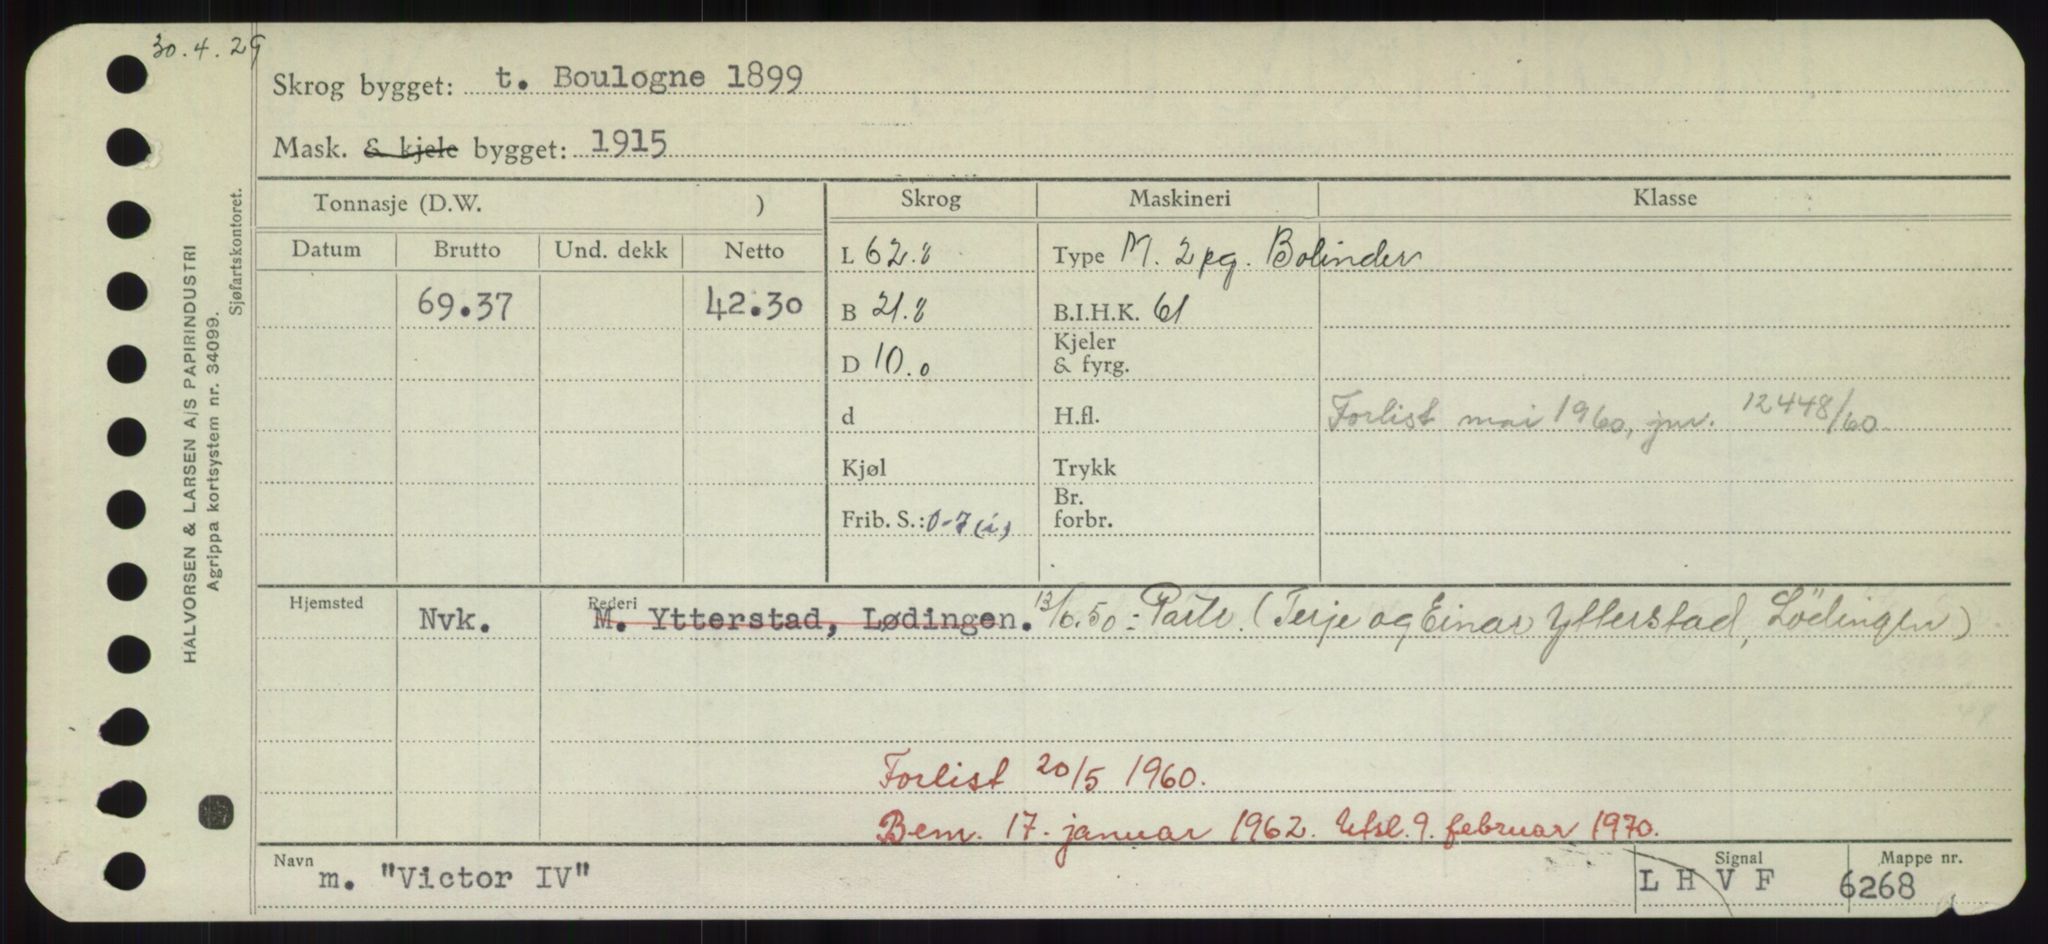 30.4.29
Skrog bygget: t. Boulogne 1899
Mask. & kjele bygget: 1915
HALVORSEN & LARSEN A/S PAPIRINDUSTRI
Agrippa kortsystem nr. 34099.
Sjøfartskontoret.
Tonnasje (D.W. ) Skrog Maskineri Klasse
Datum Brutto Und. dekk Netto
L 62.8 Type M. 2 pg. Bolinder
69.37 42.30 B 21.8 B.I.H.K. 61
D 10.0 Kjeler
& fyrg.
d H.fl. Forlist mai 1960, jnr. 12448/60
Kjøl Trykk
Frib. S.: 0-7 (i) Br.
forbr.
Hjemsted Nvk. Rederi M. Ytterstad, Lødingen. 13/6.50: Partr. (Terje og Einar Ytterstad, Lödingen)
Forlist 20/5 1960.
Bem. 17. januar 1962. Utsl. 9. februar 1970.
Navn m. "Victor IV" Signal L H V F Mappe nr. 6268